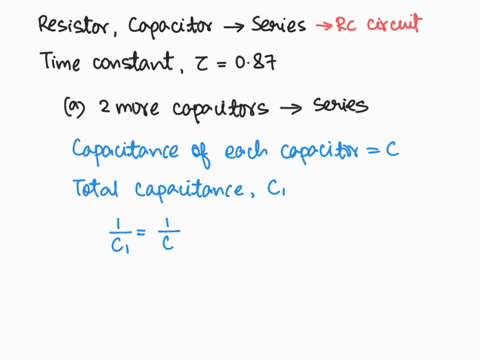 Resistor, Capacitor → Series → RC circuit
Time constant, τ = 0.87
(a) 2 more capacitors → series
Capacitance of each capacitor = C
Total capacitance, C₁
1/C₁ = 1/C